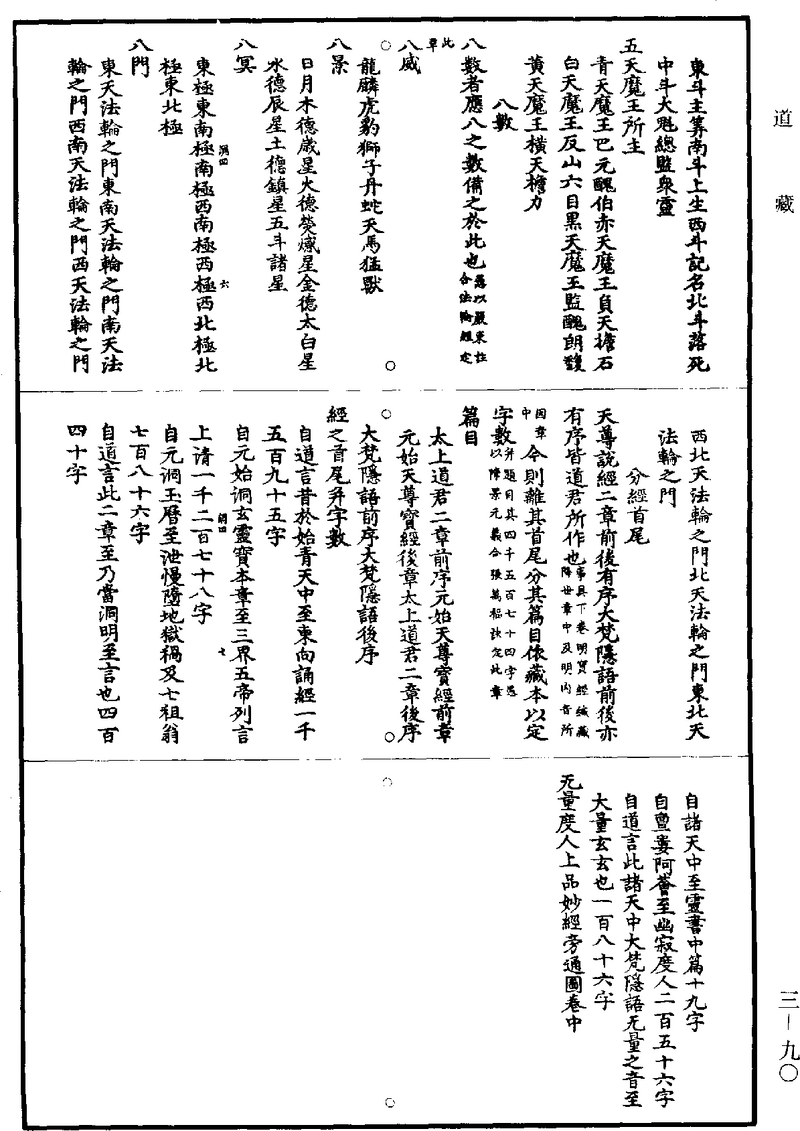 道藏
東斗主筭南斗上生西斗記名北斗落死
中斗大魁總監衆靈
五天魔王所主
青天魔王巴元醜伯赤天魔王負天擔石
白天魔王反山六目黑天魔王監醜朗馥
黃天魔王橫天擔力
八數
八數者應八之數備之於此也愚以嚴東註合法輪經定
此章
八威
龍麟虎豹獅子丹蛇天馬猛獸
八景
日月木德歲星火德熒惑星金德太白星
水德辰星土德鎮星五斗諸星
八冥
東極東南極南極西南極西極西北極北
洞四 六
極東北極
八門
東天法輪之門東南天法輪之門南天法
輪之門西南天法輪之門西天法輪之門
西北天法輪之門北天法輪之門東北天
法輪之門
分經首尾
天尊說經二章前後有序大梵隱語前後亦
有序皆道君所作也事具下卷明寶經緘藏降世章中及明內音所
因章中今則離其首尾分其篇目依藏本以定
字數并題目其四千五百七十四字愚以陳景元義合張萬福訣定此章
篇目
太上道君二章前序元始天尊寶經前章
元始天尊寶經後章太上道君二章後序
大梵隱語前序大梵隱語後序
經之首尾并字數
自道言昔於始青天中至東向誦經一千
五百九十五字
自元始洞玄靈寶本章至三界五帝列言
上清一千二百七十八字
洞四 七
自元洞玉曆至泄慢墮地獄禍及七祖翁
七百八十六字
自道言此二章至乃當洞明至言也四百
四十字
自諸天中至靈書中篇十九字
自亶婁阿薈至幽寂度人二百五十六字
自道言此諸天中大梵隱語无量之音至
大量玄玄也一百八十六字
无量度人上品妙經旁通圖卷中
三-九〇